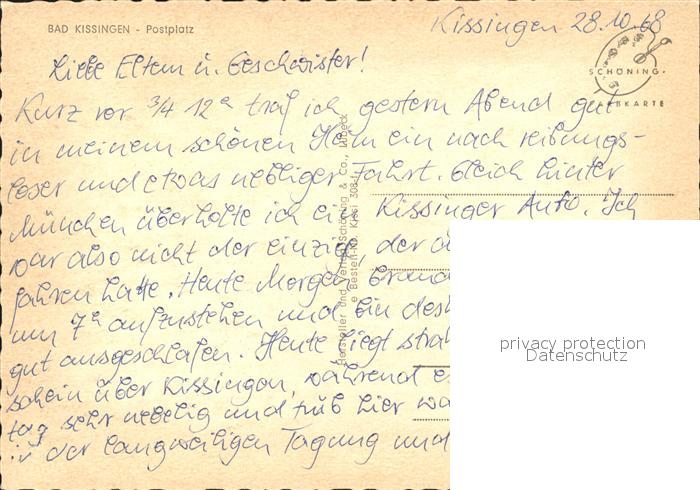 BAD KISSINGEN - Postplatz
Kissingen 28.10.68
SCHÖNING
FARBKARTE
Liebe Eltern u. Geschwister!
Kurz vor 3/4 12h traf ich gestern Abend gut
in meinem schönen Heim ein nach reibungs-
loser und etwas nebliger Fahrt. Gleich hinter
München überholte ich ein Kissinger Auto. Ich
war also nicht der einzige, der
fahren hatte. Heute Morgen
um 7h aufzustehen und bin
gut ausgeschlafen. Heute liegt
schein über Kissingen, während
tag sehr neblig und trüb hier
in der langweiligen Tagung und
Hersteller und Verlag Schöning & Co., Lübeck
Bestell-Nr. Kissi 308
privacy protection
Datenschutz